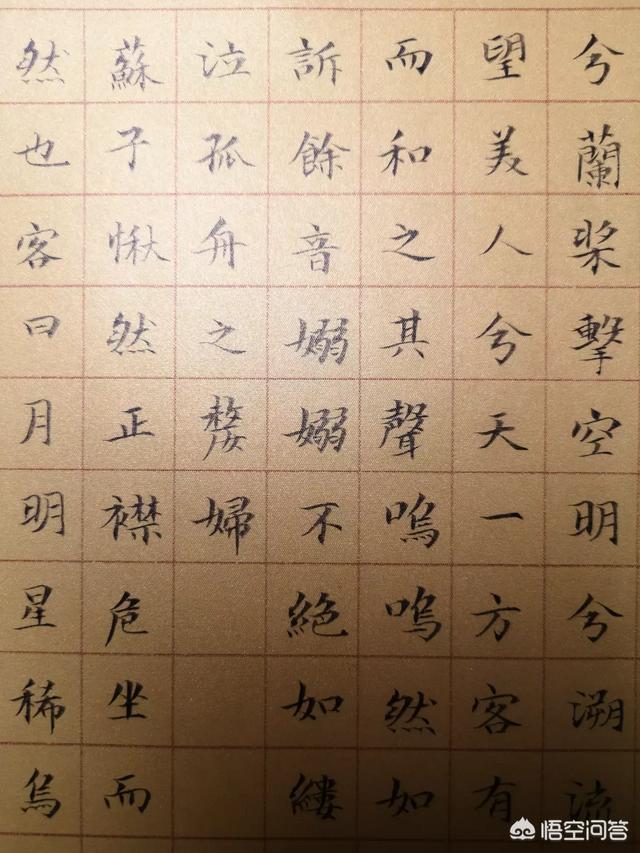 兮蘭槳擊空明兮溯流
望美人兮天一方客有
而和之其聲嗚嗚然如
訴餘音嫋嫋不絕如縷
泣孤舟之嫠婦
蘇子愀然正襟危坐而
然也客曰月明星稀烏
悟空问答